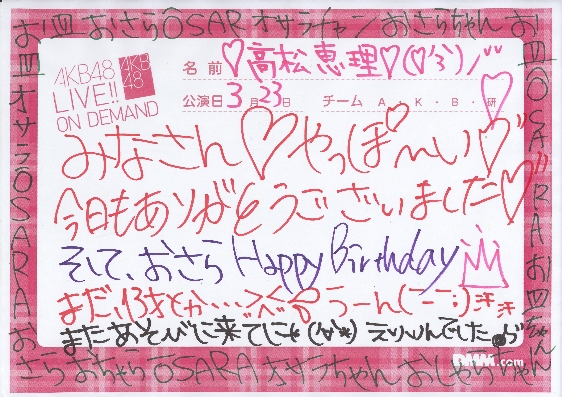 お皿 おさら ŌSARA オサラチャン おさらちゃん お皿
AKB48
LIVE!!
ON DEMAND
AKB
48
名前 ♡高松恵理♡(♡'3')ノ"
公演日 3月23日 チーム A・K・B・研
みなさん♡やっぽ〜い♡
今日もありがとうございました♡
そして、おさら Happy Birthday
まだ、13才とか・・・><。 うーん(ーー;)
またあそびに来てに (^∀^*) えりりんでした
オサラ ŌSARA
ŌSARA お皿ちゃん
おさら おちゃら ŌSARA オサラちゃん
DMM.com